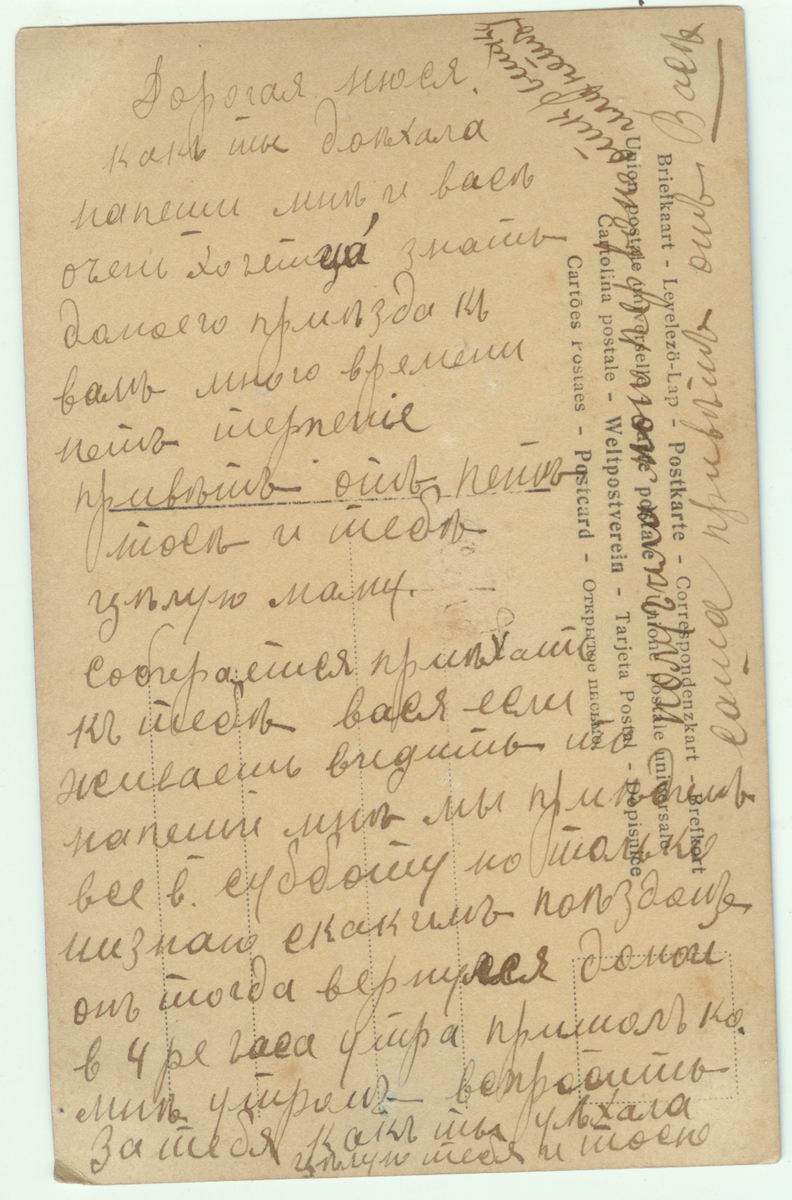 Дорогая мюся.
какъ ты доѣхала
напеши мнѣ и васѣ
очень хочетца знать
домоего приѣзда къ
вамъ много времени
нетъ терпенiе
привѣтъ отъ петѣ
тосѣ и тебѣ
цѣлую маму.
собераится приѣхать
къ тебѣ вася если
желаешь видить то
напеши мнѣ мы приѣдимъ
все в субботу но только
низнаю скакимъ поѣздомъ
онъ тогда вернулся домои
в 4 ре часа утра пришолъ ко
мнѣ утромъ вспросить
За тебя какъ ты уѣхала
цѣлую тебя и тосю
привѣтъ отъ Васѣ
Briefkaart - Levelező-Lap - Postkarte - Correspondenzkart - Brefkort
Union postale universelle - Unione postale universale
Cartolina postale - Weltpostverein - Tarjeta Postal - Dopisnice
Cartões Postaes - Postcard - Открытое письмо